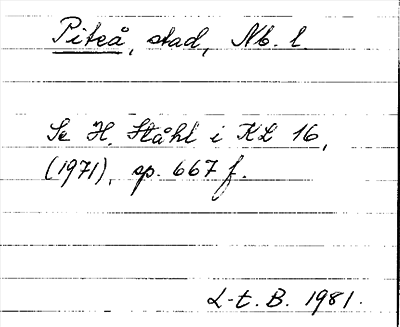 Piteå, stad, Nb. l
Se H. Ståhl i KL 16,
(1971), sp. 667 f.
L-t. B. 1981.